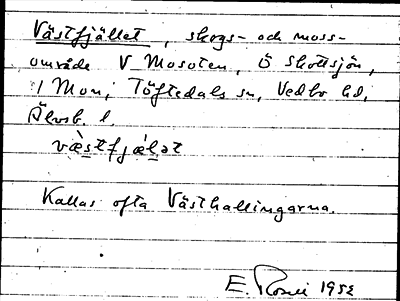 Västfjället, skogs- och moss-
område V Mosoten, Ö Skottsjön,
i Mon, Töftedals sn, Vedbo hd,
Älvsb. l.
væ̀stfjælət
Kallas ofta Västhallingarna.
E. 1952